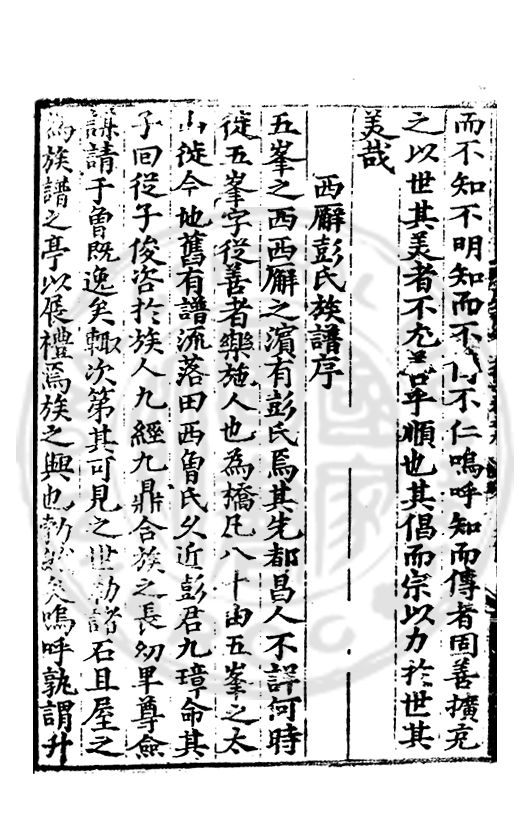 而不知不明知而不傳不仁嗚呼知而傳者固善擴充
之以世其美者不尤善乎順也其倡而宗以力於世其
美哉
西廨彭氏族譜序
五峯之西西廨之濵有彭氏焉其先都昌人不詳何時
徙五峯字從善者樂施人也為橋凢八十由五峯之太
山徙今地舊有譜流落田西魯氏乆近彭君九璋命其
子回從子俊咨於族人九經九鼎合族之長㓜卑尊僉
謀請于魯既逸矣輙次第其可見之世勒諸石且屋之
為族譜之亭以展禮焉族之興也勃然矣嗚呼孰謂升